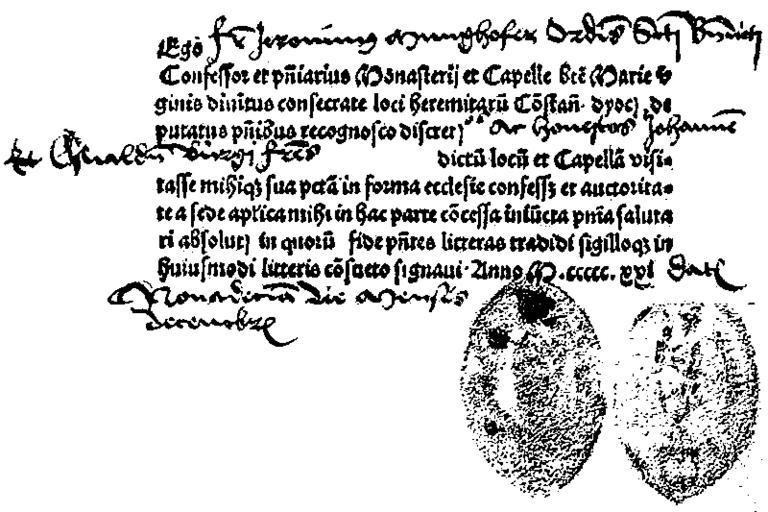 Ego fr̄ Jeronimus Munghofer Ordīs Scti Bn̄dicti
Confessor et pn̄iarius Monasterij et Capelle bt̄e Marie v̾
ginis diuinitus consecrate loci heremitarū Cōstan̄. dyoc̄. de
putatus pn̄ibus recognosco discret Ac honestos Johannē
et Oswaldū fr̄es dictū locū et Capellā visi-
tasse mihiqʒ sua pctā in forma ecclesie confessʒ et auctorita-
te a sede aplica mihi in hac parte cōcessa iniūcta pn̄ia saluta
ri absolui in quorū fide pn̄tes litteras tradidi sigilloqʒ in
huiusmodi litteris cōsueto signaui. Anno M. ccccc. xxi dat̄
Nona die Mensis
decembr̄